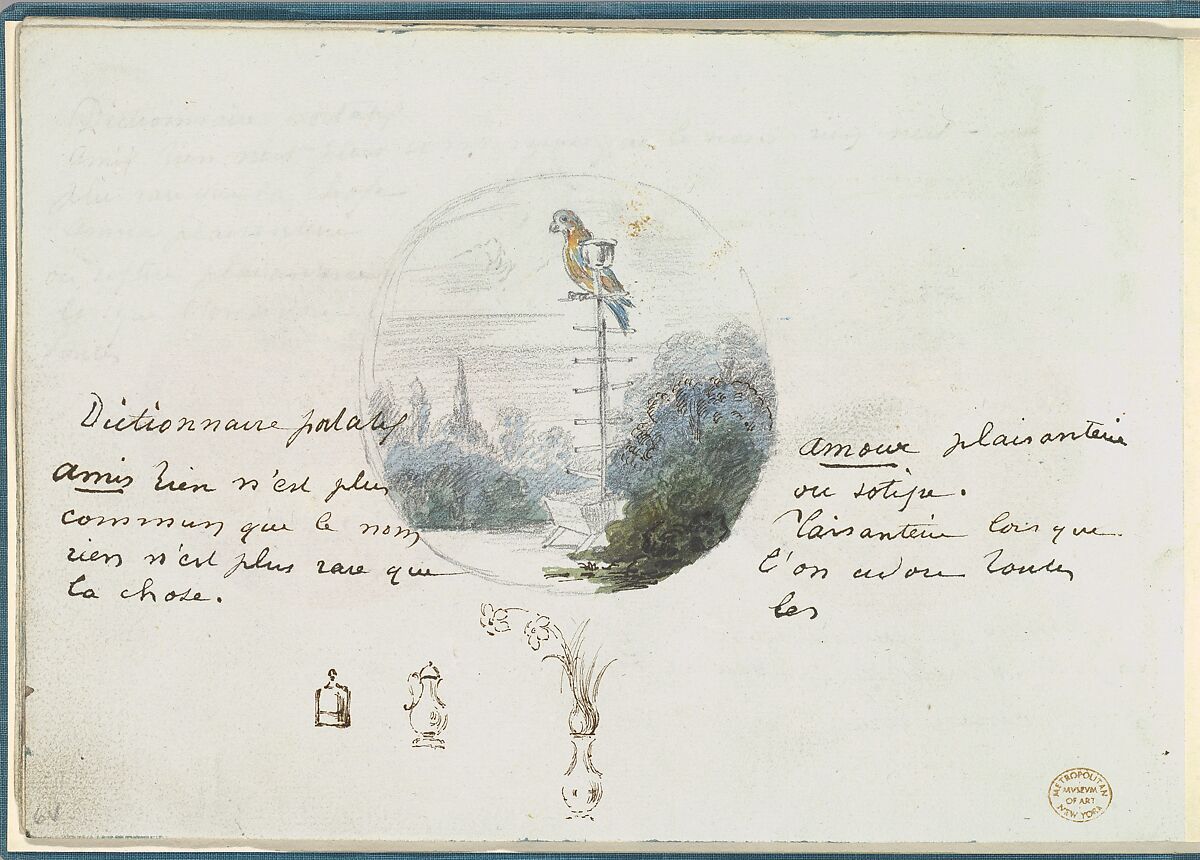 Dictionnaire portatif
amis rien n'est plus
commun que le nom
rien n'est plus rare que
la chose.
amour plaisanterie
ou sotise.
Plaisanterie lors que
l'on adore toutes
les
METROPOLITAN
MVSEVM
OF ART
NEW YORK